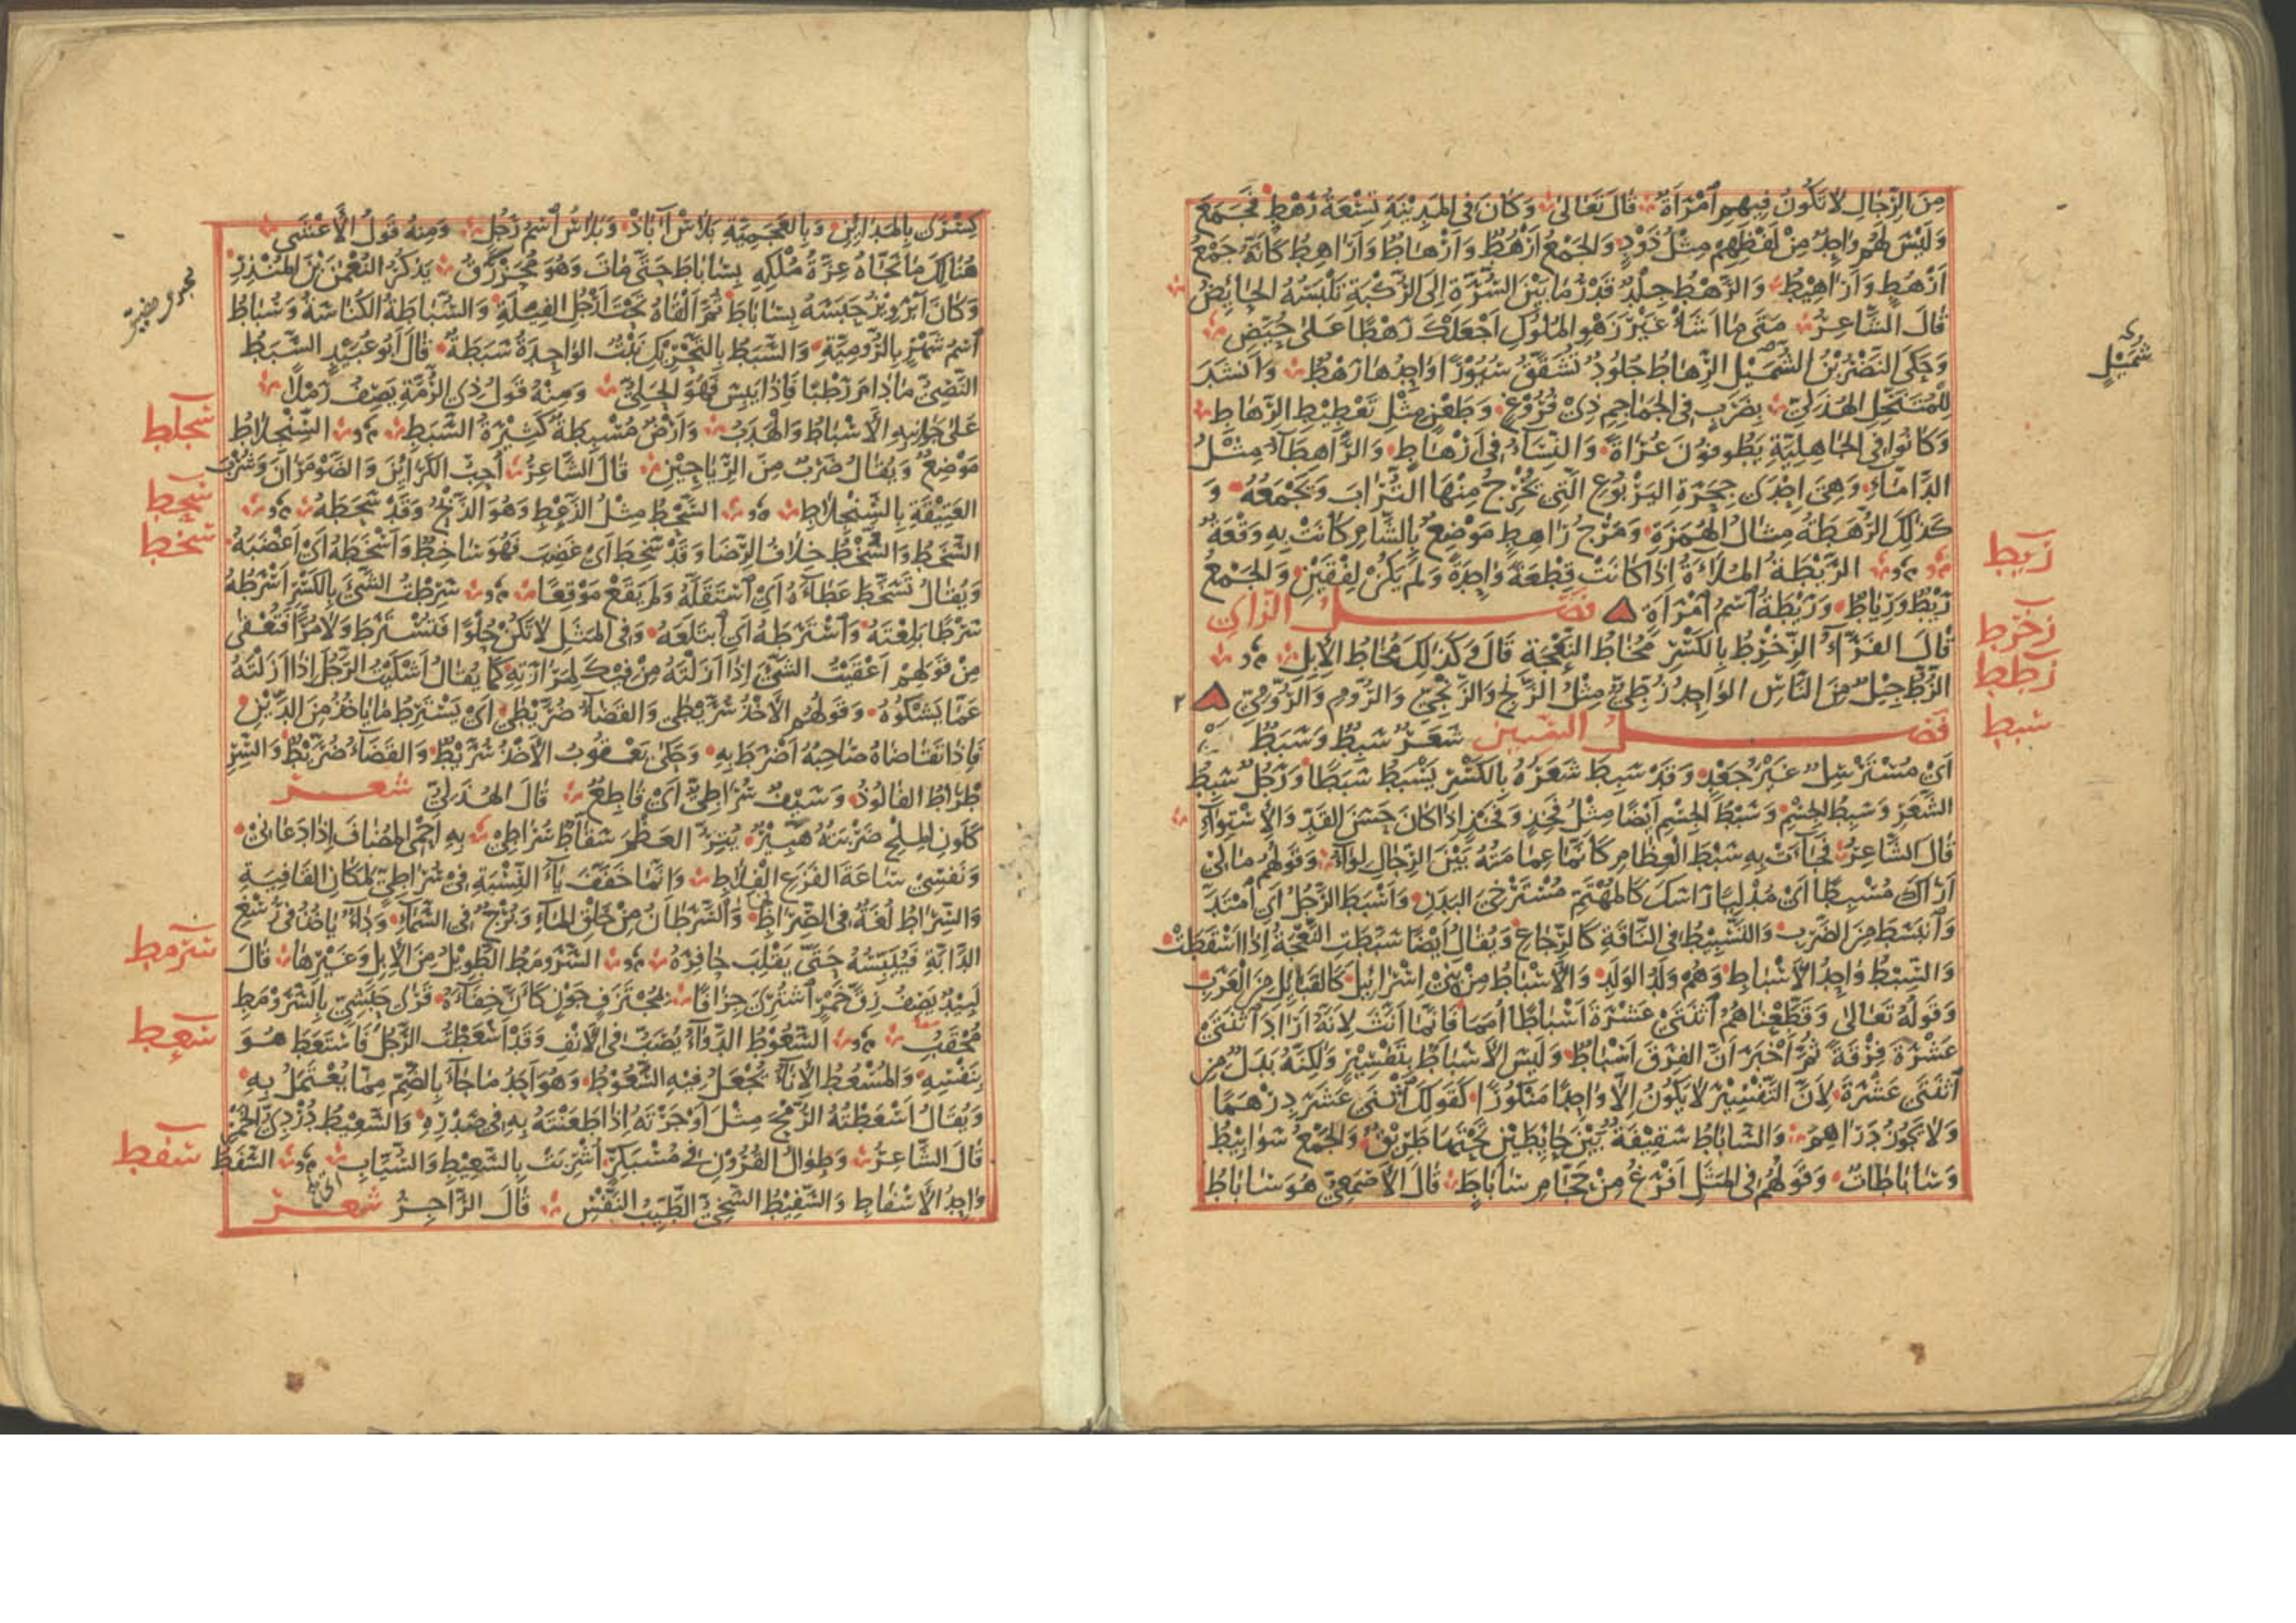 مِنَ الرِّجَالِ لَا تَكُونُ فِيهِمِ ٱمْرَأَةٌ قَالَ تَعَالَى وَكَانَ فِى المَدِيْنَةِ تِسْعَةُ رَهْطٍ فَجَمَعَ
وَلَيْسَ لَهُمْ وَاحِدٌ مِنْ لَفْظِهِمْ مِثْلُ ذَوْدٍ وَالجَمْعُ أَرْهُطٌ وَأَرْهَاطٌ وَأَرَاهِطُ كَأَنَّهُ جَمْعُ
أَرْهُطٍ وَأَرَاهِيْطُ وَالرَّهْطُ جِلْدٌ قَدْرُ مَا بَيْنَ السُّرَّةِ إِلَى الرُّكْبَةِ تَلْبَسُهُ الحَائِضُ
قَالَ الشَّاعِرُ مَتَى مَا أَشَأْ غَيْرَ زَهْوِ المُلُوكِ أَجْعَلْكَ رَهْطًا عَلَى حُيَّضِ
وَحَكَى النَّضْرُ بْنُ الشُّمَيْلِ الرِّهَاطُ جُلُودٌ تُشَقَّقُ سُيُوْرًا وَاحِدُهَا رَهْطٌ وَأَنْشَدَ
لِلْمُتَنَخِّلِ الهُذَلِيِّ بِضَرْبٍ فِى الجَمَاجِمِ ذِيْ فُرُوْغٍ وَطَعْنٍ مِثْلِ تَعْطِيْطِ الرِّهَاطِ
وَكَانُوا فِى الجَاهِلِيَّةِ يَطُوفُونَ عُرَاةً وَالنِّسَاءُ فِى أَرْهَاطٍ وَالرَّاهِطَاءُ مِثْلُ
الدَّامَّاءِ وَهِىَ إِحْدَى جِحَرَةِ اليَرْبُوعِ الَّتِى يُخْرِجُ مِنْهَا التُّرَابَ وَيَجْمَعُهُ وَ
كَذٰلِكَ الرُّهَطَةُ مِثَالُ الهُمَزَةِ وَمَرْجُ رَاهِطٍ مَوْضِعٌ بِالشَّامِ كَانَتْ بِهِ وَقْعَةٌ
الرَّيْطَةُ المُلَاءَةُ إِذَا كَانَتْ قِطْعَةً وَاحِدَةً وَلَمْ يَكُنْ لِفْقَيْنِ وَالجَمْعُ
رَيْطٌ وَرِيَاطٌ وَرَيْطَةُ ٱسْمُ ٱمْرَأَةٍ فَصْلُ الزَّاي
قَالَ الفَرَّاءُ الزِّخْرِطُ بِالكَسْرِ مُخَاطُ النَّعْجَةِ قَالَ وَكَذٰلِكَ مُخَاطُ الإِبِلِ
الزُّطُّ جِيْلٌ مِنَ النَّاسِ الوَاحِدُ زُطِّيٌّ مِثْلُ الزَّنْجِ وَالزَّنْجِيِّ وَالرُّومِ وَالرُّوْمِيِّ
فَصْلُ السِّيْن شَعَرٌ سَبِطٌ وَسَبْطٌ
أَيْ مُسْتَرْسِلٌ غَيْرُ جَعْدٍ وَقَدْ سَبِطَ شَعَرُهُ بِالكَسْرِ يَسْبَطُ سَبَطًا وَرَجُلٌ سَبِطُ
الشَّعَرِ وَسَبِطُ الجِسْمِ وَسَبْطُ الجِسْمِ أَيْضًا مِثْلُ فَخِذٍ وَفَخْذٍ إِذَا كَانَ حَسَنَ القَدِّ وَالِاسْتِوَاءِ
قَالَ الشَّاعِرُ فَجَاءَتْ بِهِ سَبْطَ العِظَامِ كَأَنَّمَا عِمَامَتُهُ بَيْنَ الرِّجَالِ لِوَاءُ وَقَوْلُهُمْ مَا لِيْ
أَرَاكَ مُسْبِطًا أَيْ مُدْلِيًا رَأْسَكَ كَالمُهْتَمِّ مُسْتَرْخِيَ البَدَنِ وَأَسْبَطَ الرَّجُلُ أَيِ ٱمْتَدَّ
وَٱنْبَسَطَ مِنَ الضَّرْبِ وَالتَّسْبِيْطُ فِى النَّاقَةِ كَالرِّجَاعِ وَيُقَالُ أَيْضًا سَبَّطَتِ النَّعْجَةُ إِذَا أَسْقَطَتْ
وَالسِّبْطُ وَاحِدُ الأَسْبَاطِ وَهُمْ وَلَدُ الوَلَدِ وَالأَسْبَاطُ مِنْ بَنِيْ إِسْرَائِيْلَ كَالقَبَائِلِ مِنَ العَرَبِ
وَقَوْلُهُ تَعَالَى وَقَطَّعْنَاهُمُ ٱثْنَتَيْ عَشْرَةَ أَسْبَاطًا أُمَمًا فَإِنَّمَا أَنَّثَ لِأَنَّهُ أَرَادَ ٱثْنَتَيْ
عَشْرَةَ فِرْقَةً ثُمَّ أَخْبَرَ أَنَّ الفِرَقَ أَسْبَاطٌ وَلَيْسَ الأَسْبَاطُ بِتَفْسِيْرٍ وَلٰكِنَّهُ بَدَلٌ مِنِ
ٱثْنَتَيْ عَشْرَةَ لِأَنَّ التَّفْسِيْرَ لَا يَكُونُ إِلَّا وَاحِدًا مَنْكُورًا كَقَوْلِكَ ٱثْنَيْ عَشَرَ دِرْهَمًا
وَلَا يَجُوزُ دَرَاهِمَ وَالسَّابَاطُ سَقِيْفَةٌ بَيْنَ حَائِطَيْنِ تَحْتَهَا طَرِيْقٌ وَالجَمْعُ سَوَابِيْطُ
وَسَابَاطَاتٌ وَقَوْلُهُمْ فِى المَثَلِ أَفْرَغُ مِنْ حَجَّامِ سَابَاطَ قَالَ الأَصْمَعِيُّ هُوَ سَابَاطُ
شُمَيْلٍ
ريط
زخرط
زطط
سبط
كِسْرَى بِالمَدَايِنِ وَبِالعَجَمِيَّةِ بَلَاسْ آبَاذْ وَبَلَاسُ ٱسْمُ رَجُلٍ وَمِنْهُ قَوْلُ الأَعْشَى
هُنَالِكَ مَا نَجَّاهُ عِزَّةُ مُلْكِهِ بِسَابَاطَ حَتَّى مَاتَ وَهُوَ مُحَرْزَقُ يَذْكُرُ النُّعْمٰنَ بْنَ المُنْذِرِ
وَكَانَ أَبْرَوِيْزُ حَبَسَهُ بِسَابَاطَ ثُمَّ أَلْقَاهُ تَحْتَ أَرْجُلِ الفِيَلَةِ وَالسُّبَاطَةُ الكُنَاسَةُ وَسُبَاطُ
ٱسْمُ شَهْرٍ بِالرُّومِيَّةِ وَالسَّبَطُ بِالتَّحْرِيْكِ نَبْتٌ الوَاحِدَةُ سَبَطَةٌ قَالَ أَبُو عُبَيْدٍ السَّبَطُ
النَّصِيُّ مَادَامَ رَطْبًا فَإِذَا يَبِسَ فَهُوَ الحَلِيُّ وَمِنْهُ قَوْلُ ذِى الرُّمَّةِ يَصِفُ رَمْلًا
عَلَى جَوَانِبِهِ الأَسْبَاطُ وَالهَدَبُ وَأَرْضٌ مُسْبِطَةٌ كَثِيْرَةُ السَّبَطِ السِّنْجِلَاطُ
مَوْضِعٌ وَيُقَالُ ضَرْبٌ مِنَ الرَّيَاحِيْنِ قَالَ الشَّاعِرُ أُحِبُّ الكَرَائِنَ وَالضَّوْمَرَانَ وَشُرْبَ
العَتِيْقَةِ بِالسِّنْجِلَاطِ السَّحْطُ مِثْلُ الذَّعْطِ وَهُوَ الذَّبْحُ وَقَدْ سَحَطَهُ
السَّخَطُ وَالسُّخْطُ خِلَافُ الرِّضَا وَقَدْ سَخِطَ أَيْ غَضِبَ فَهُوَ سَاخِطٌ وَأَسْخَطَهُ أَيْ أَغْضَبَهُ
وَيُقَالُ تَسَخَّطَ عَطَاءَهُ أَيِ ٱسْتَقَلَّهُ وَلَمْ يَقَعْ مَوْقِعًا سَرِطْتُ الشَّيْءَ بِالكَسْرِ أَسْرَطُهُ
سَرْطًا بَلِعْتُهُ وَٱسْتَرَطَهُ أَيِ ٱبْتَلَعَهُ وَفِى المَثَلِ لَا تَكُنْ حُلْوًا فَتُسْتَرَطَ وَلَا مُرًّا فَتُعْقَى
مِنْ قَوْلِهِمْ أَعْقَيْتُ الشَّيْءَ إِذَا أَزَلْتَهُ مِنْ فِيْكَ لِمَرَارَتِهِ كَمَا يُقَالُ أَشْكَيْتُ الرَّجُلَ إِذَا أَزَلْتَهُ
عَمَّا يَشْكُوهُ وَقَوْلُهُمِ الأَخْذُ سُرَّيْطَى وَالقَضَاءُ ضُرَّيْطَى أَيْ يَسْتَرِطُ مَا يَأْخُذُ مِنَ الدَّيْنِ
فَإِذَا تَقَاضَاهُ صَاحِبُهُ أَضْرَطَ بِهِ وَحَكَى يَعْقُوبُ الأَخْذُ سُرَّيْطٌ وَالقَضَاءُ ضُرَّيْطٌ وَالسِّرِ
طْرَاطُ الفَالُوذُ وَسَيْفٌ سُرَاطِيٌّ أَيْ قَاطِعٌ قَالَ الهُذَلِيُّ شعر
كَلَوْنِ المِلْحِ ضَرْبَتُهُ هَبِيْرٌ يُتِرُّ العَظْمَ سَقَّاطٌ سُرَاطِيْ بِهِ أَحْمِى المُضَافَ إِذَا دَعَانِيْ
وَنَفْسِيْ سَاعَةَ الفَزَعِ الفِلَاطِ وَإِنَّمَا خَفَّفَ يَاءَ النِّسْبَةِ فِيْ سُرَاطِيٍّ لِمَكَانِ القَافِيَةِ
وَالسِّرَاطُ لُغَةٌ فِى الصِّرَاطِ وَالسَّرَطَانُ مِنْ خَلْقِ المَاءِ وَبُرْجٌ فِى السَّمَاءِ وَدَاءٌ يَأْخُذُ فِى رُسْغِ
الدَّابَّةِ فَيُيَبِّسُهُ حَتَّى يَقْلِبَ حَافِرَهُ السَّرَوْمَطُ الطَّوِيْلُ مِنَ الإِبِلِ وَغَيْرِهَا قَالَ
لَبِيْدٌ يَصِفُ زِقَّ خَمْرٍ ٱشْتُرِىَ جِزَافًا بِمُجْتَزَفٍ جَوْنٍ كَأَنَّ خِفَاءَهُ قَرَى حَبَشِيٍّ بِالسَّرَوْمَطِ
مُحْقَبُ السَّعُوْطُ الدَّوَاءُ يُصَبُّ فِى الأَنْفِ وَقَدْ أَسْعَطْتُ الرَّجُلَ فَاسْتَعَطَ هُوَ
بِنَفْسِهِ وَالمُسْعُطُ الإِنَاءُ يُجْعَلُ فِيْهِ السَّعُوْطُ وَهُوَ أَحَدُ مَا جَاءَ بِالضَّمِّ مِمَّا يُعْتَمَلُ بِهِ
وَيُقَالُ أَسْعَطْتُهُ الرُّمْحَ مِثْلَ أَوْجَرْتَهُ إِذَا طَعَنْتَهُ بِهِ فِى صَدْرِهِ وَالسَّعِيْطُ دُرْدِيُّ الخَمْرِ
قَالَ الشَّاعِرُ وَطِوَالُ القُرُوْنِ فِى مُسْبَكِرٍّ أُشْرِبَتْ بِالسَّعِيْطِ وَالسَّيَّابِ السَّفَطُ
وَاحِدُ الأَسْفَاطِ وَالسَّفِيْطُ السَّخِيُّ الطَّيِّبُ النَّفْسِ قَالَ الرَّاجِزُ شعر
سجلط
سحط
سخط
سرمط
سعط
سفط